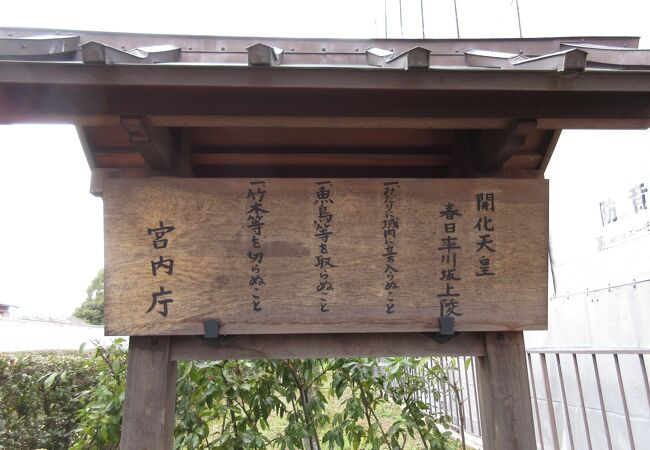 開化天皇
春日率川坂上陵
一みだりに域内に立入らぬこと
一魚鳥等を取らぬこと
一竹木等を切らぬこと
宮内庁
防音